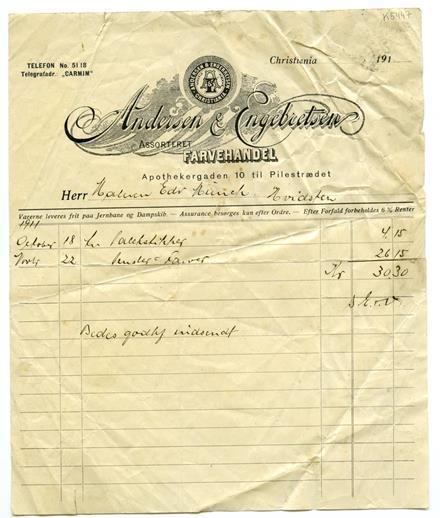 K5447
TELEFON No. 5118
Telegrafadr. „CARMIM"
ANDERSEN & ENGEBRETSEN
CHRISTIANIA
Christiania 191
Andersen & Engebretsen
ASSORTERET
FARVEHANDEL
Apothekergaden 10 til Pilestrædet
Herr Maleren Edv Münch Hvidsten
Varerne leveres frit paa Jernbane og Dampskib. — Assurance besørges kun efter Ordre. — Efter Forfald forbeholdes 6 % Renter
1911
October 18 4 15
Novbr 22 26 15
Kr 30.30
Bedes godhf indsendt